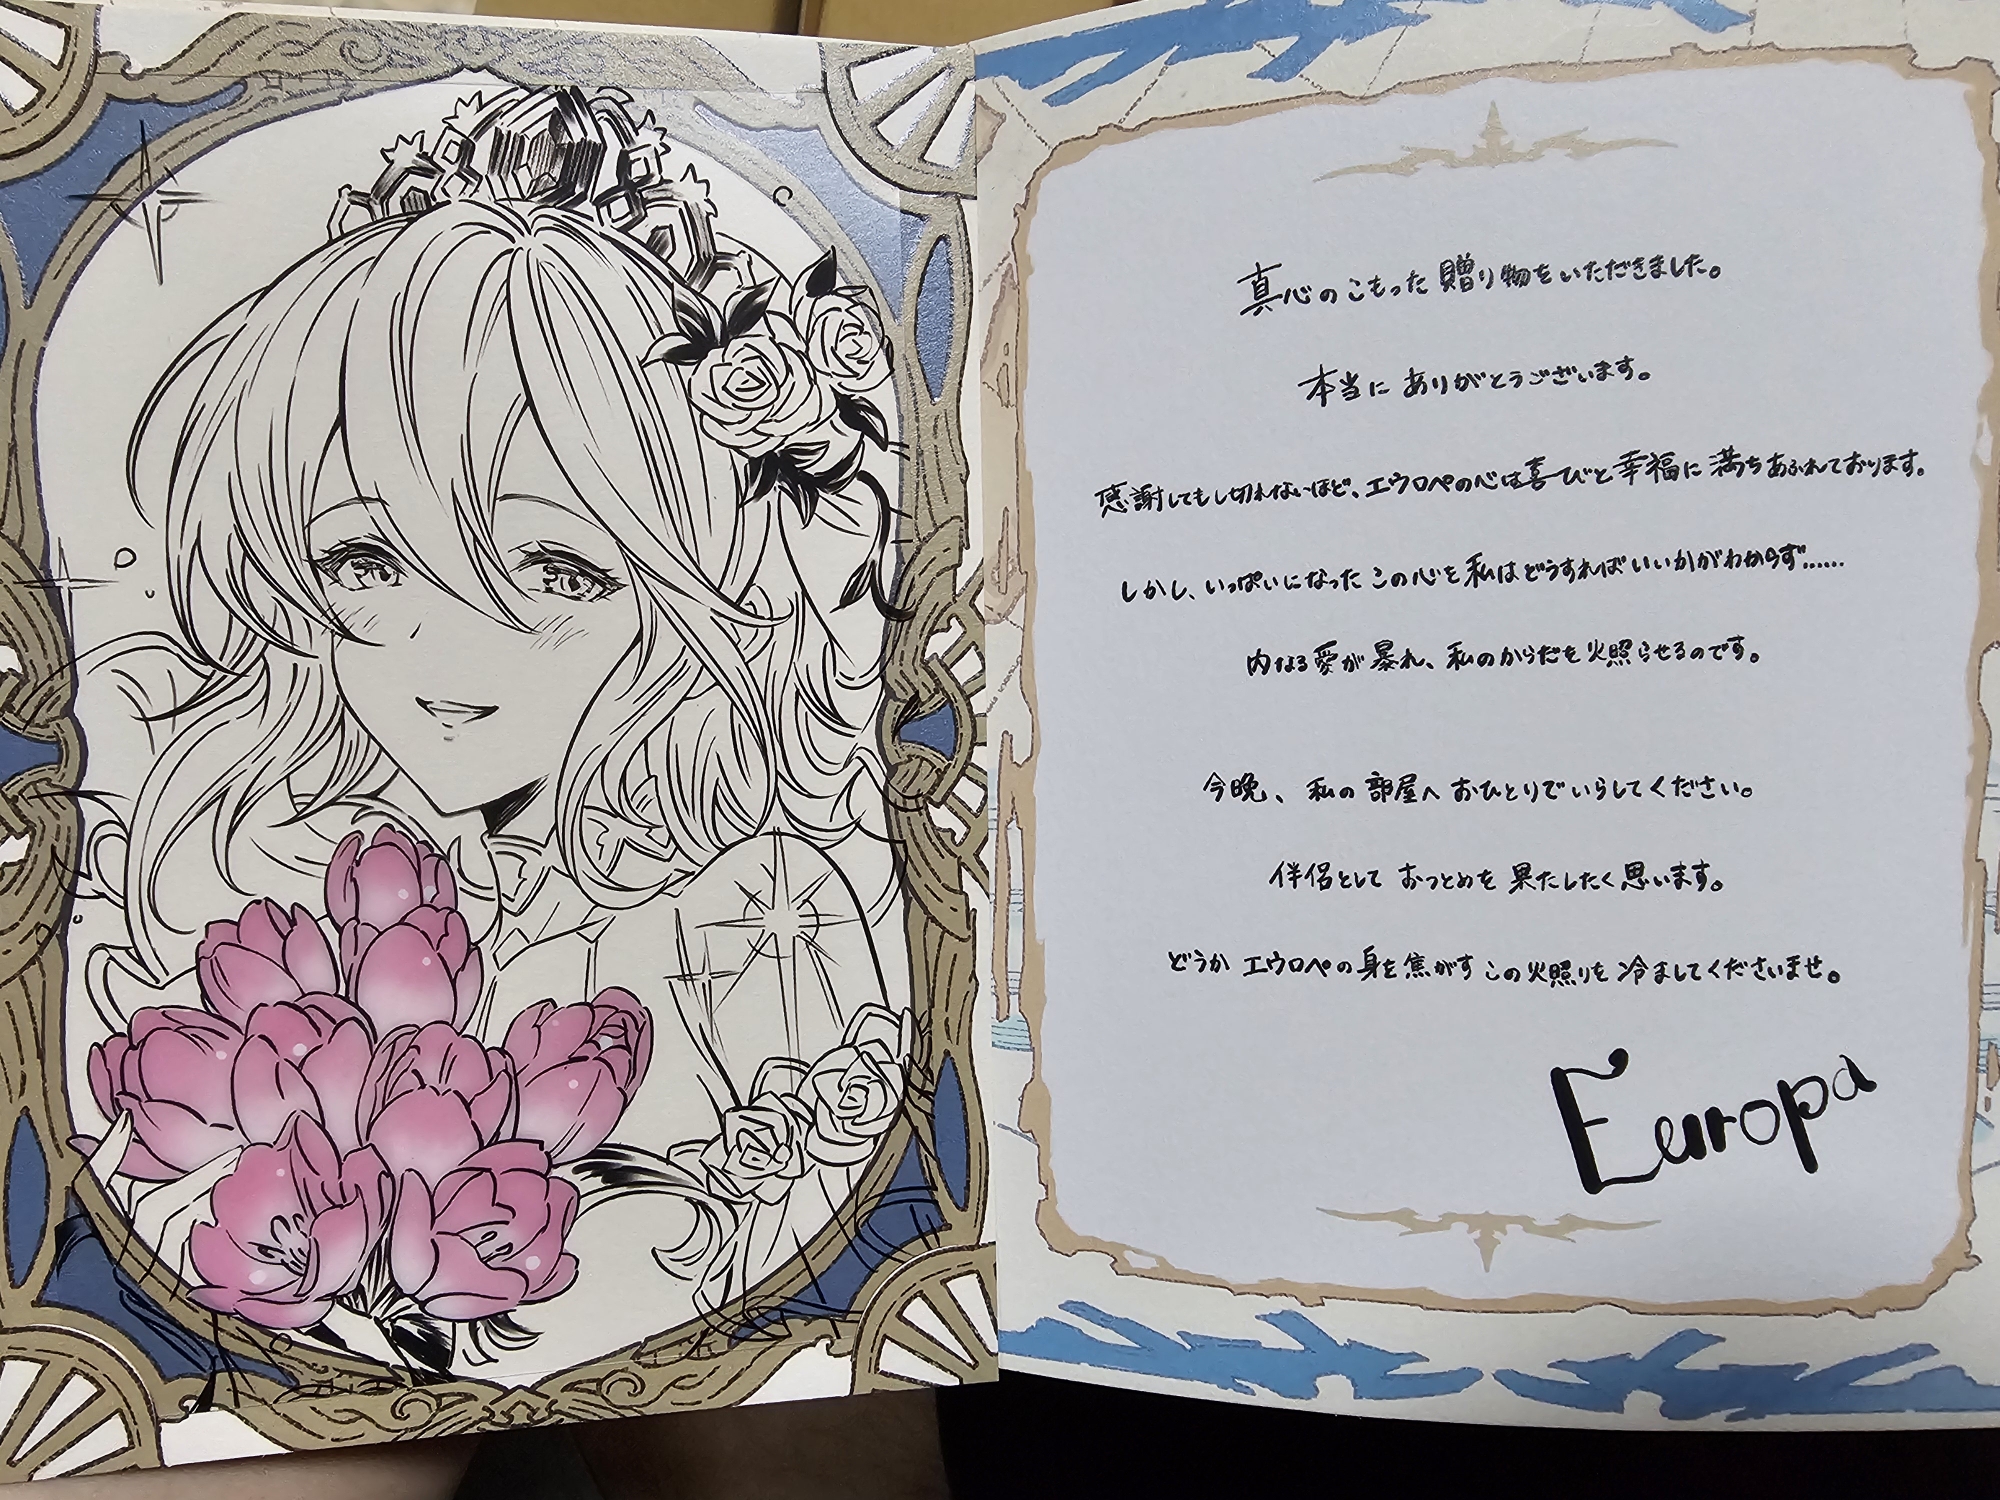 真心のこもった贈り物をいただきました。
本当にありがとうございます。
感謝してもし切れないほど、エウロペの心は喜びと幸福に満ちあふれております。
しかし、いっぱいになったこの心を私はどうすればいいかがわからず……
内なる愛が暴れ、私のからだを火照らせるのです。
今晩、私の部屋へおひとりでいらしてください。
伴侶としておつとめを果たしたく思います。
どうかエウロペの身を焦がすこの火照りを冷ましてくださいませ。
Europa